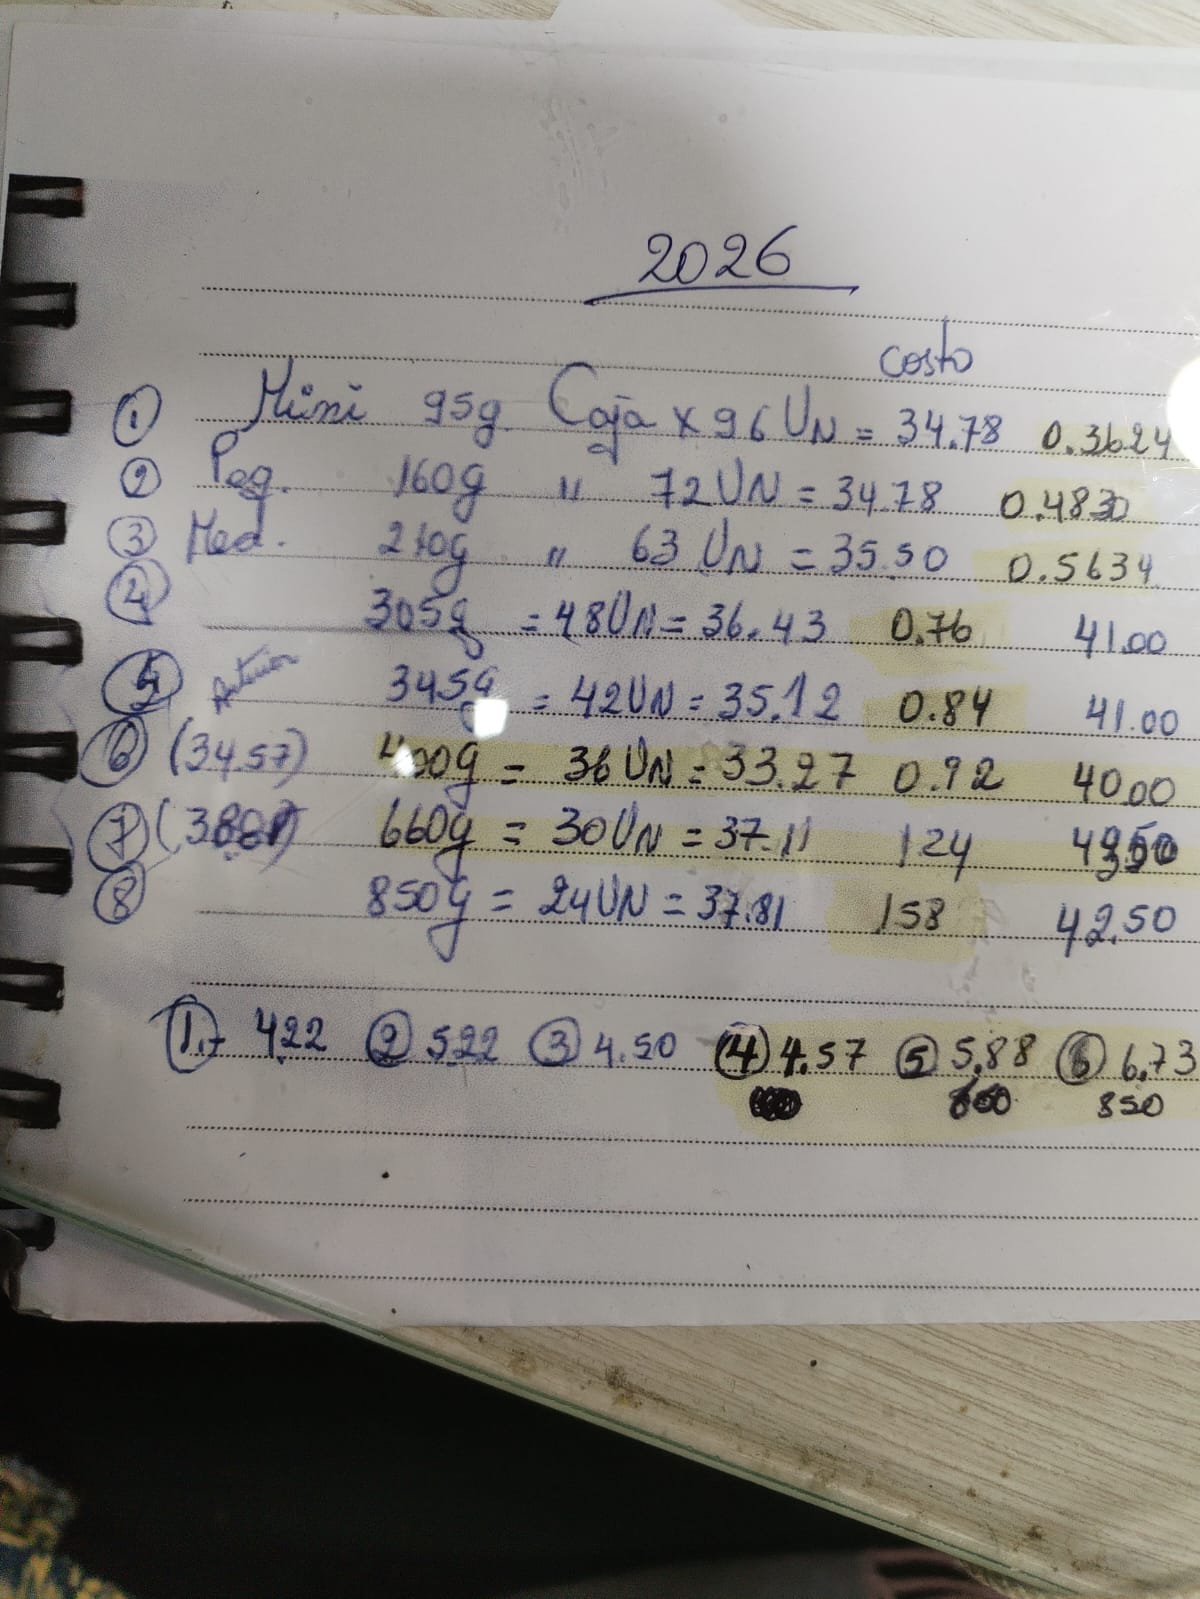 2026
costo
① Mini 95g. Caja x 96 UN = 34.78 0.3624
② Peq. 160g " 72 UN = 34.78 0.4830
③ Med. 210g " 63 UN = 35.50 0.5634
④ 305g = 48 UN = 36.43 0.76 41.00
⑤ Anterior 345g = 42 UN = 35.12 0.84 41.00
⑥ (34.57) 400g = 36 UN = 33.27 0.92 40.00
⑦ 660g = 30 UN = 37.11 124
⑧ 850g = 24 UN = 37.81 158 42.50
①.- 4.22 ② 5.22 ③ 4.50 ④ 4.57 ⑤ 5.88 ⑥ 6.73
850